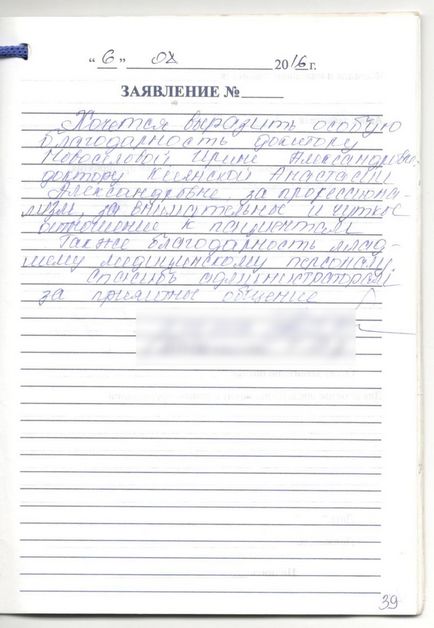 "6" 04 2016 г.
ЗАЯВЛЕНИЕ №
Хочется выразить особую
благодарность доктору
Ирине Александровне
доктору Анастасии
Александровне за профессиона-
лизм, за внимательные и чуткое
отношение к пациентам
Также благодарность млад-
шему медицинскому персоналу,
спасибо администраторам
за приятное общение
39